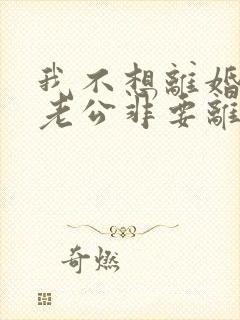 我不想離婚
老公非要離
奇燃